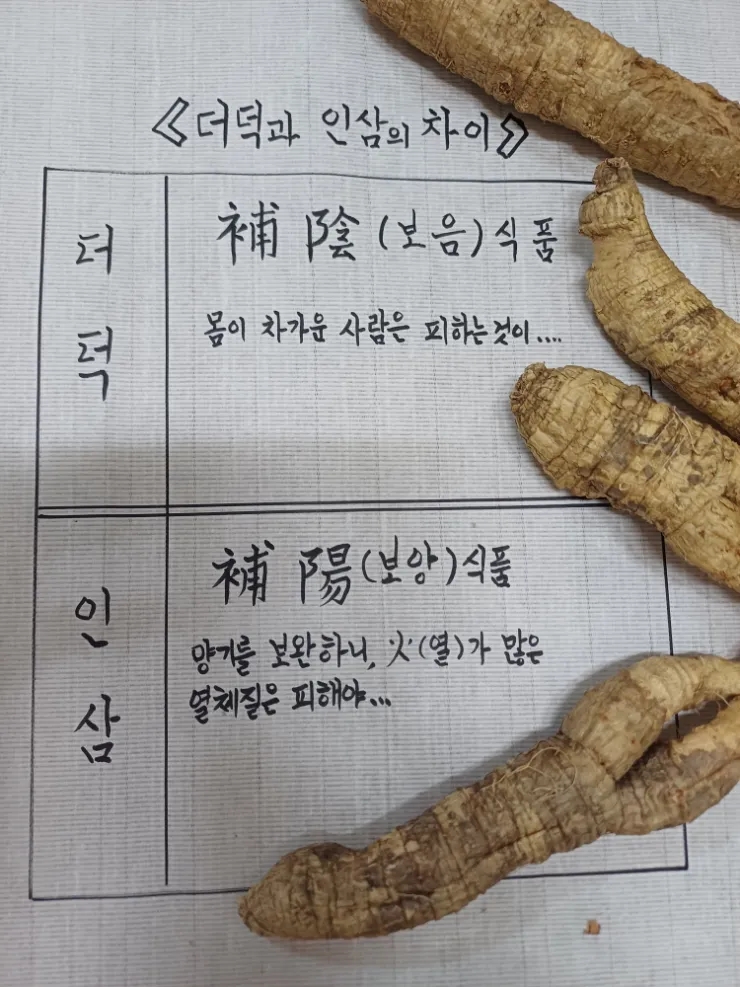 <더덕과 인삼의 차이>
더덕
補陰(보음)식품
몸이 차가운 사람은 피하는것이....
인삼
補陽(보양)식품
양기를 보완하니, 火(열)가 많은
열체질은 피해야...